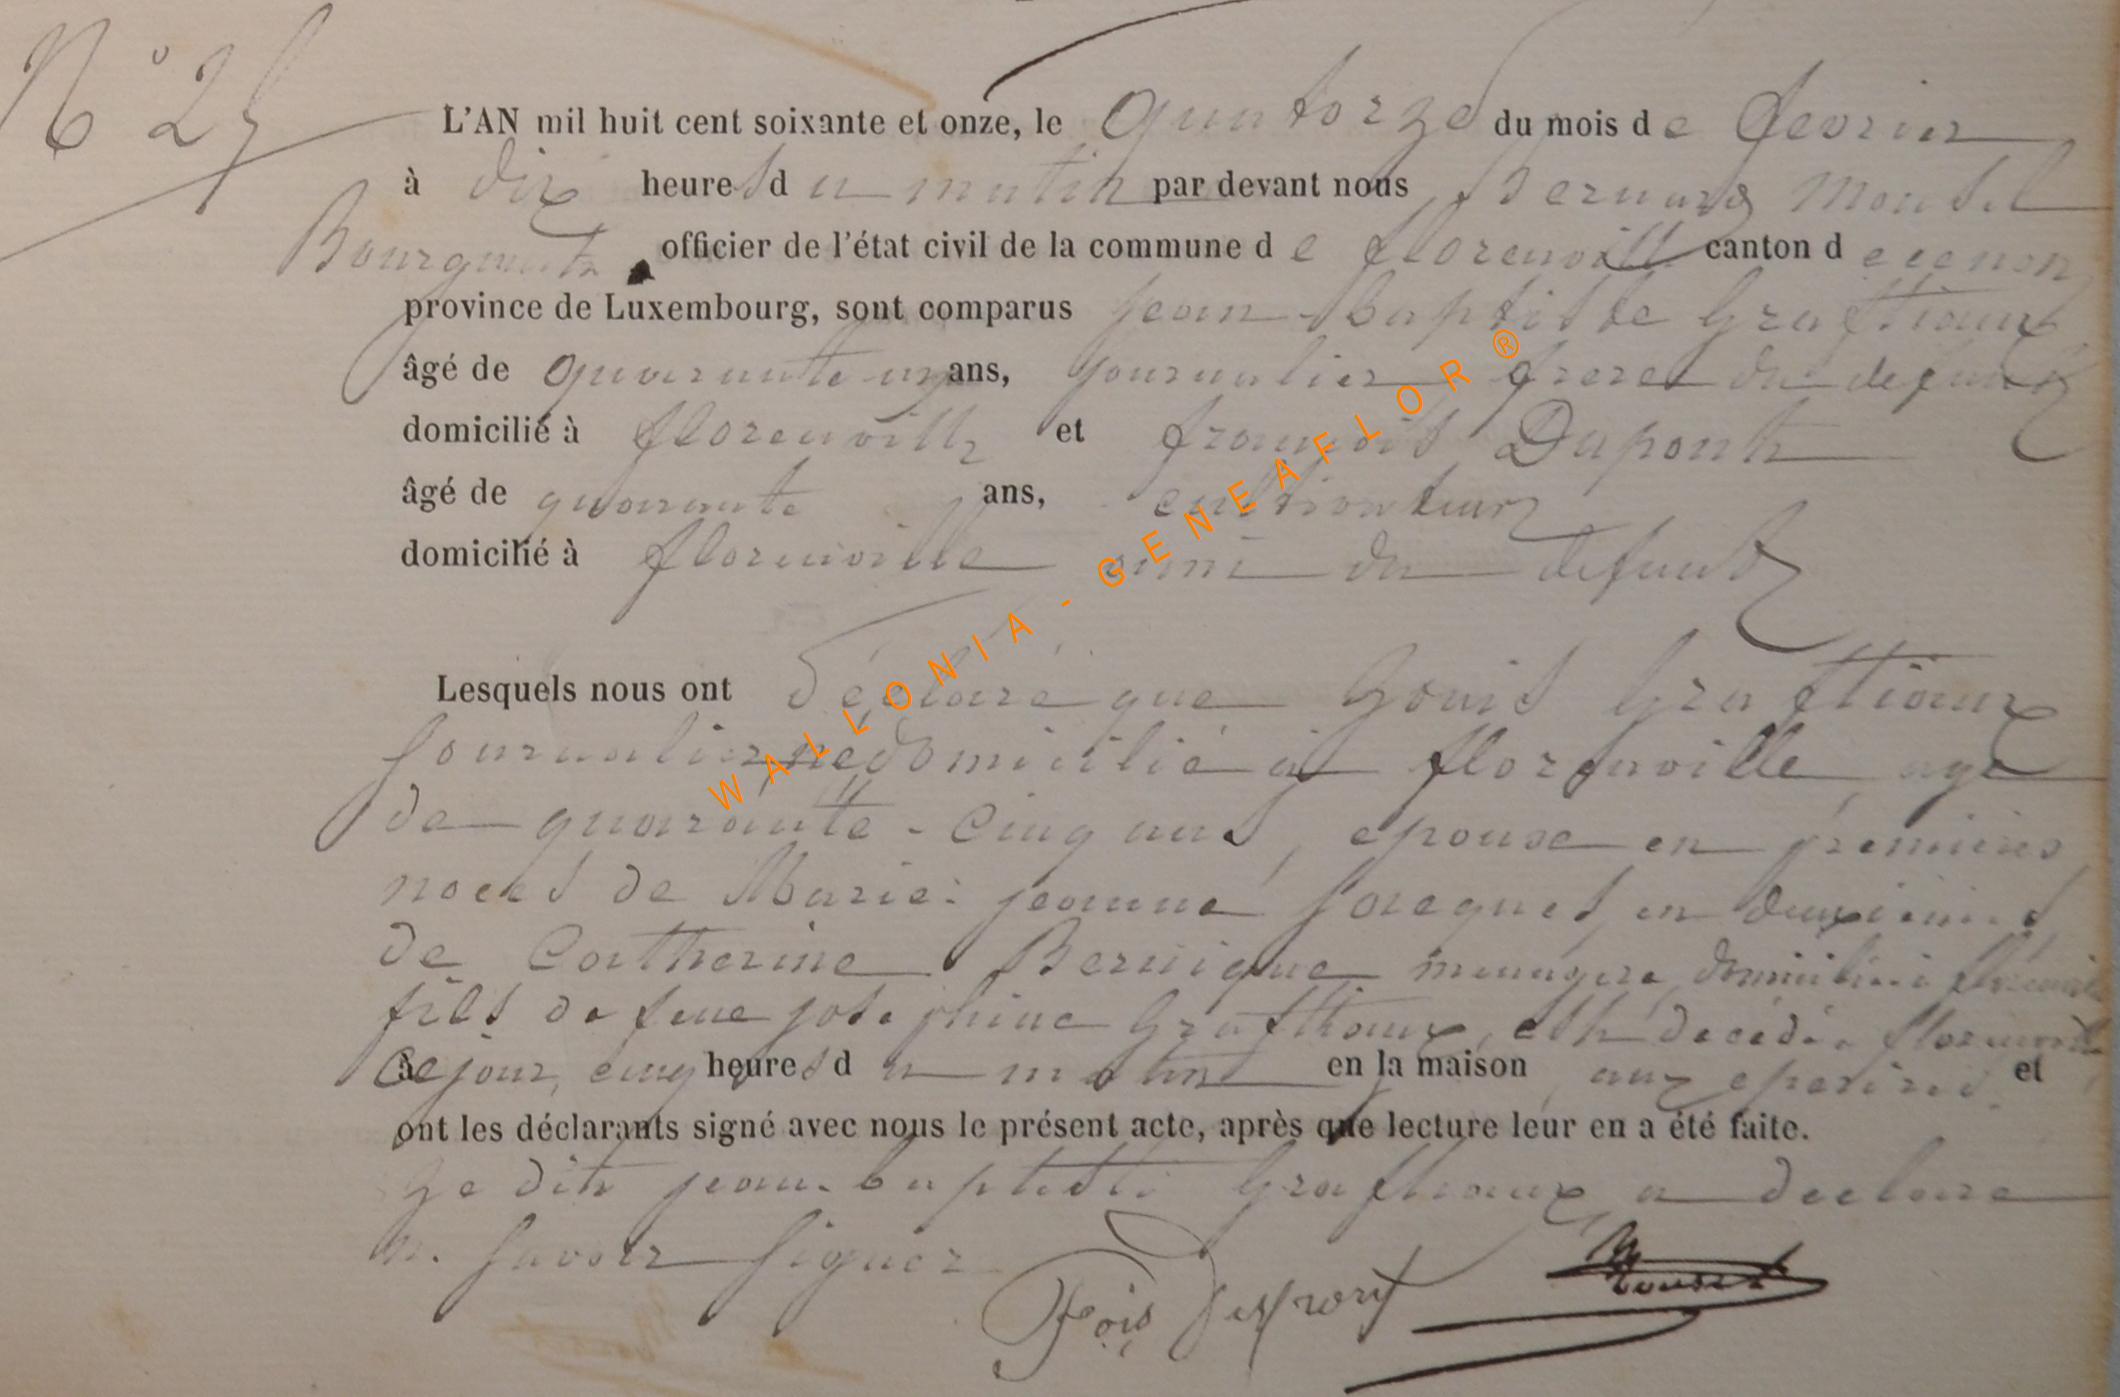 N° 25
L'AN mil huit cent soixante et onze, le quatorze du mois de fevrier
à dix heures du matin par devant nous Bernard Mousel
Bourgmestre officier de l'état civil de la commune de florenville canton d
province de Luxembourg, sont comparus jean-baptiste Graftiaux
âgé de quarante un ans, journalier frere du defunt
domicilié à florenville et françois Dupont
âgé de quarante ans, cultivateur
domicilié à florenville ami du defunt
Lesquels nous ont déclaré que Louis Graftiaux
journalier né domicilié à florenville agé
de quarante-cinq ans, epouse en premieres
noces de Marie-jeanne en deuxiemes
de Catherine menagere domicilié à florenville
fils de feue josephine Grafthiaux, est décédé à florenville
à ce jour, cinq heures du matin en la maison et
ont les déclarants signé avec nous le présent acte, après que lecture leur en a été faite.
Le dit jean-baptiste Grafthiaux a declare
ne savoir signer
Fois Dupont Mousel
WALLONIA - GENEAFLOR ®